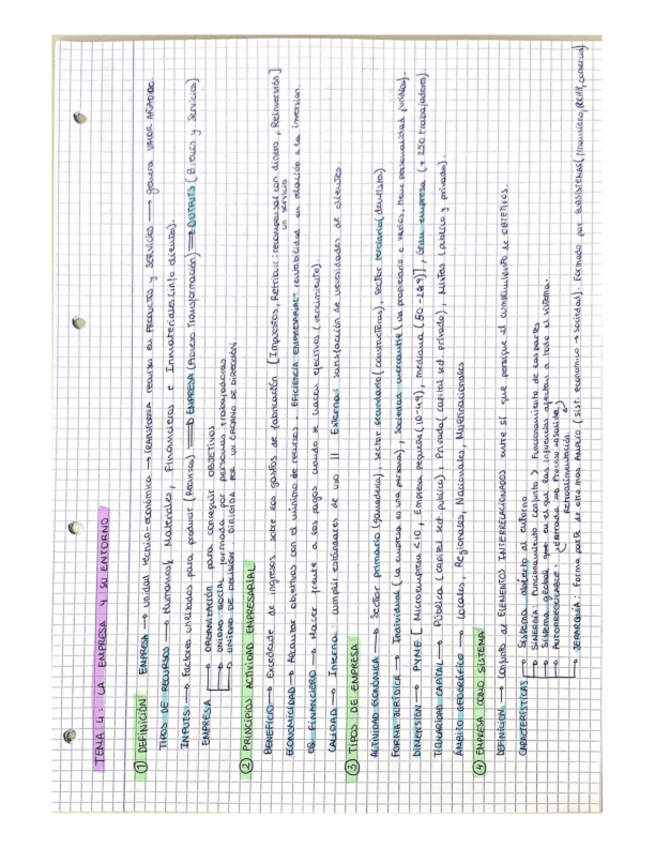 TEMA 4: LA EMPRESA Y SU ENTORNO
① DEFINICIÓN
EMPRESA → Unidad técnico-económica → TRANSFORMA recursos en PRODUCTOS y SERVICIOS → genera VALOR AÑADIDO.
TIPOS DE RECURSOS → Humanos, Materiales, Financieros e Inmateriales (info clientes).
INPUTS → Factores utilizados para producir (Recursos) ⟹ EMPRESA (Proceso Transformación) ⟹ OUTPUTS (Bienes y Servicios)
EMPRESA → ORGANIZACIÓN para conseguir OBJETIVOS
→ UNIDAD SOCIAL formada por personas trabajadoras
→ UNIDAD DE DECISIÓN DIRIGIDA POR UN ÓRGANO DE DIRECCIÓN.
② PRINCIPIOS ACTIVIDAD EMPRESARIAL
BENEFICIO → Excedente de ingresos sobre los gastos de fabricación [Impuestos, Retribuir: recompensar con dinero, Reinversión]
un servicio
ECONOMICIDAD → Alcanzar objetivos con el mínimo de recursos. "EFICIENCIA EMPRESARIAL" rentabilidad en relación a la inversión.
EQ. FINANCIERO → Hacer frente a los pagos cuando se hacen efectivos (vencimiento)
CALIDAD → Interna: cumplir estándares de uso || Externa: satisfacción de necesidades de clientes
③ TIPOS DE EMPRESA
ACTIVIDAD ECONÓMICA → Sector primario (ganadería), sector secundario (constructoras), sector terciario (dentistas)
FORMA JURÍDICA → Individual (la empresa es una persona), Sociedad mercantil (un propietario o varios, tiene personalidad jurídica).
DIMENSIÓN → PYME [Microempresa <10, Empresa pequeña (10-49), mediana (50-249)], Gran empresa (+250 trabajadores)
TITULARIDAD CAPITAL → Pública (capital sect. público), Privada (capital sect. privado), Mixtas (público y privado).
ÁMBITO GEOGRÁFICO → Locales, Regionales, Nacionales, Multinacionales
④ EMPRESA COMO SISTEMA
DEFINICIÓN → Conjunto de ELEMENTOS INTERRELACIONADOS entre sí que persigue el cumplimiento de OBJETIVOS.
CARACTERÍSTICAS → Sistema abierto al entorno
→ SINERGIA: Funcionamiento conjunto > Funcionamiento de las partes
→ Sistema global en el que las influencias afectan a todo el sistema.
→ AUTORREGULABLE: (Entrada ⇒ Proceso ⇒ Salida)
Retroalimentación
→ JERARQUÍA: Forma parte de otro más AMPLIO (sist. económico → sociedad). Formado por SUBSISTEMAS (financiero, RRHH, comercial)